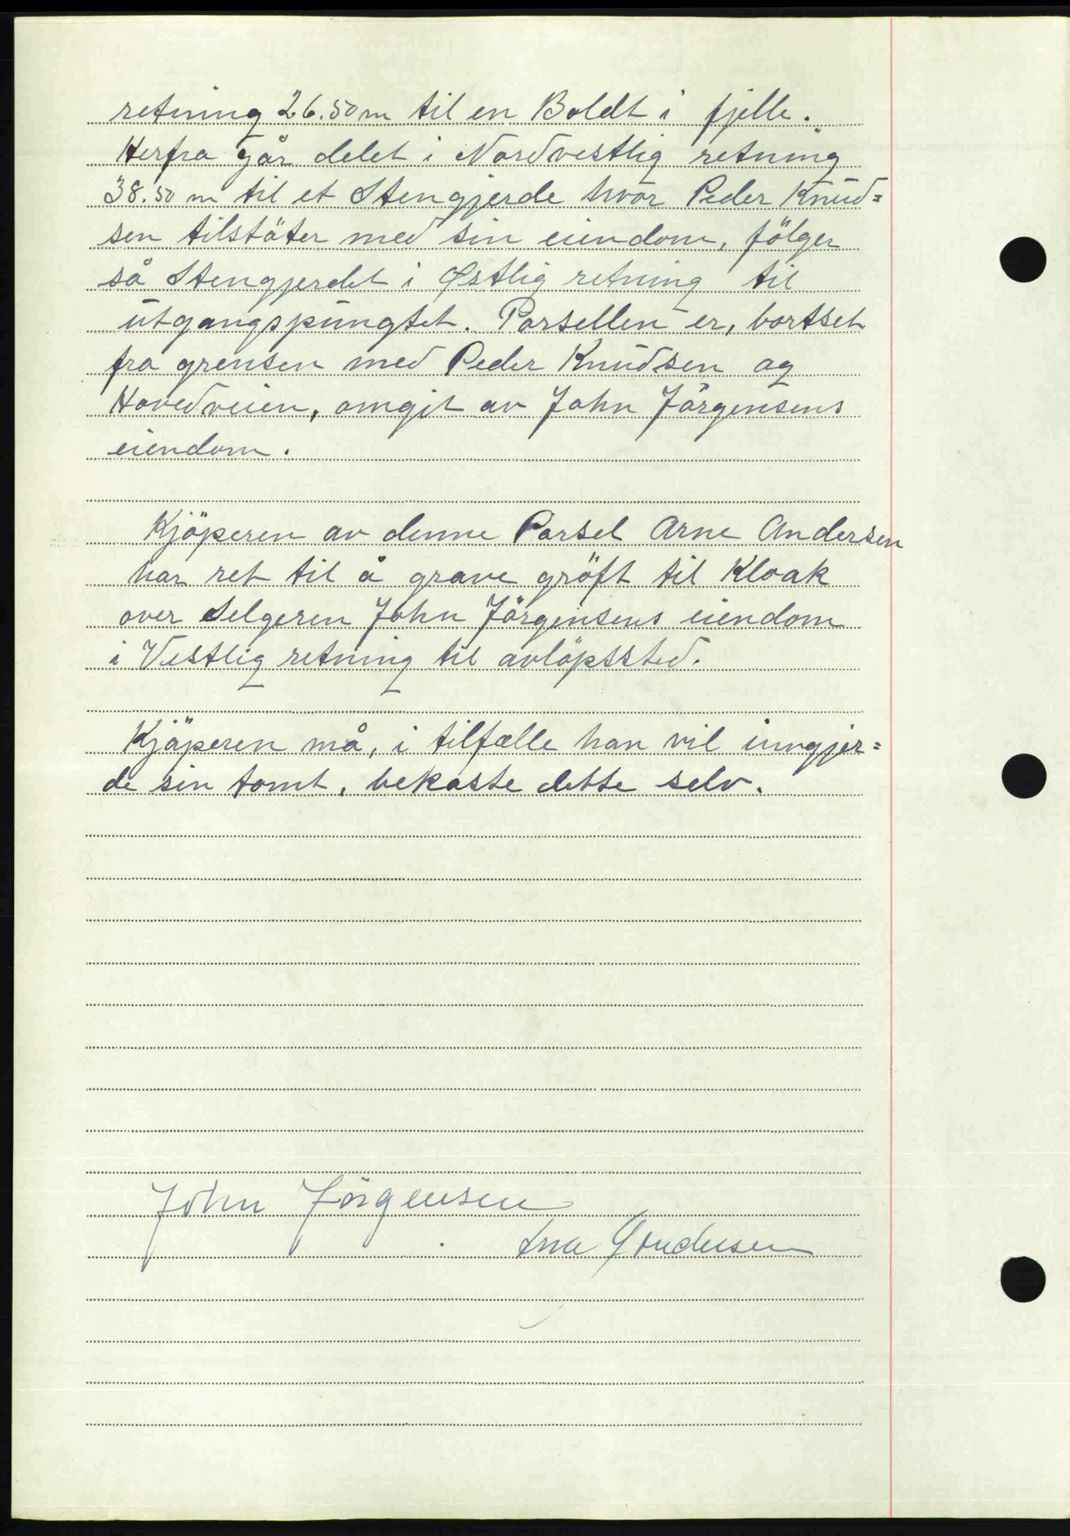 retning 26.50 m til en Boldt i fjelle.
Herfra går delet i Nordvestlig retning
38.50 m til et Stengjerde hvor Peder Knud=
sen tilstöter med sin eiendom, fölger
så Stengjerdet i Østlig retning til
utgangspungtet. Parsellen er, bortset
fra grensen med Peder Knudsen og
Hovedveien, omgit av John Jörgensens
eiendom.
Kjöperen av denne Parsel Arne Andersen
har ret til å grave gröft til Kloak
over Selgeren John Jörgensens eiendom
i Vestlig retning til avlöpssted.
Kjöperen må, i tilfælle han vil inngjer=
de sin tomt, bekoste dette selv.
John Jörgensen